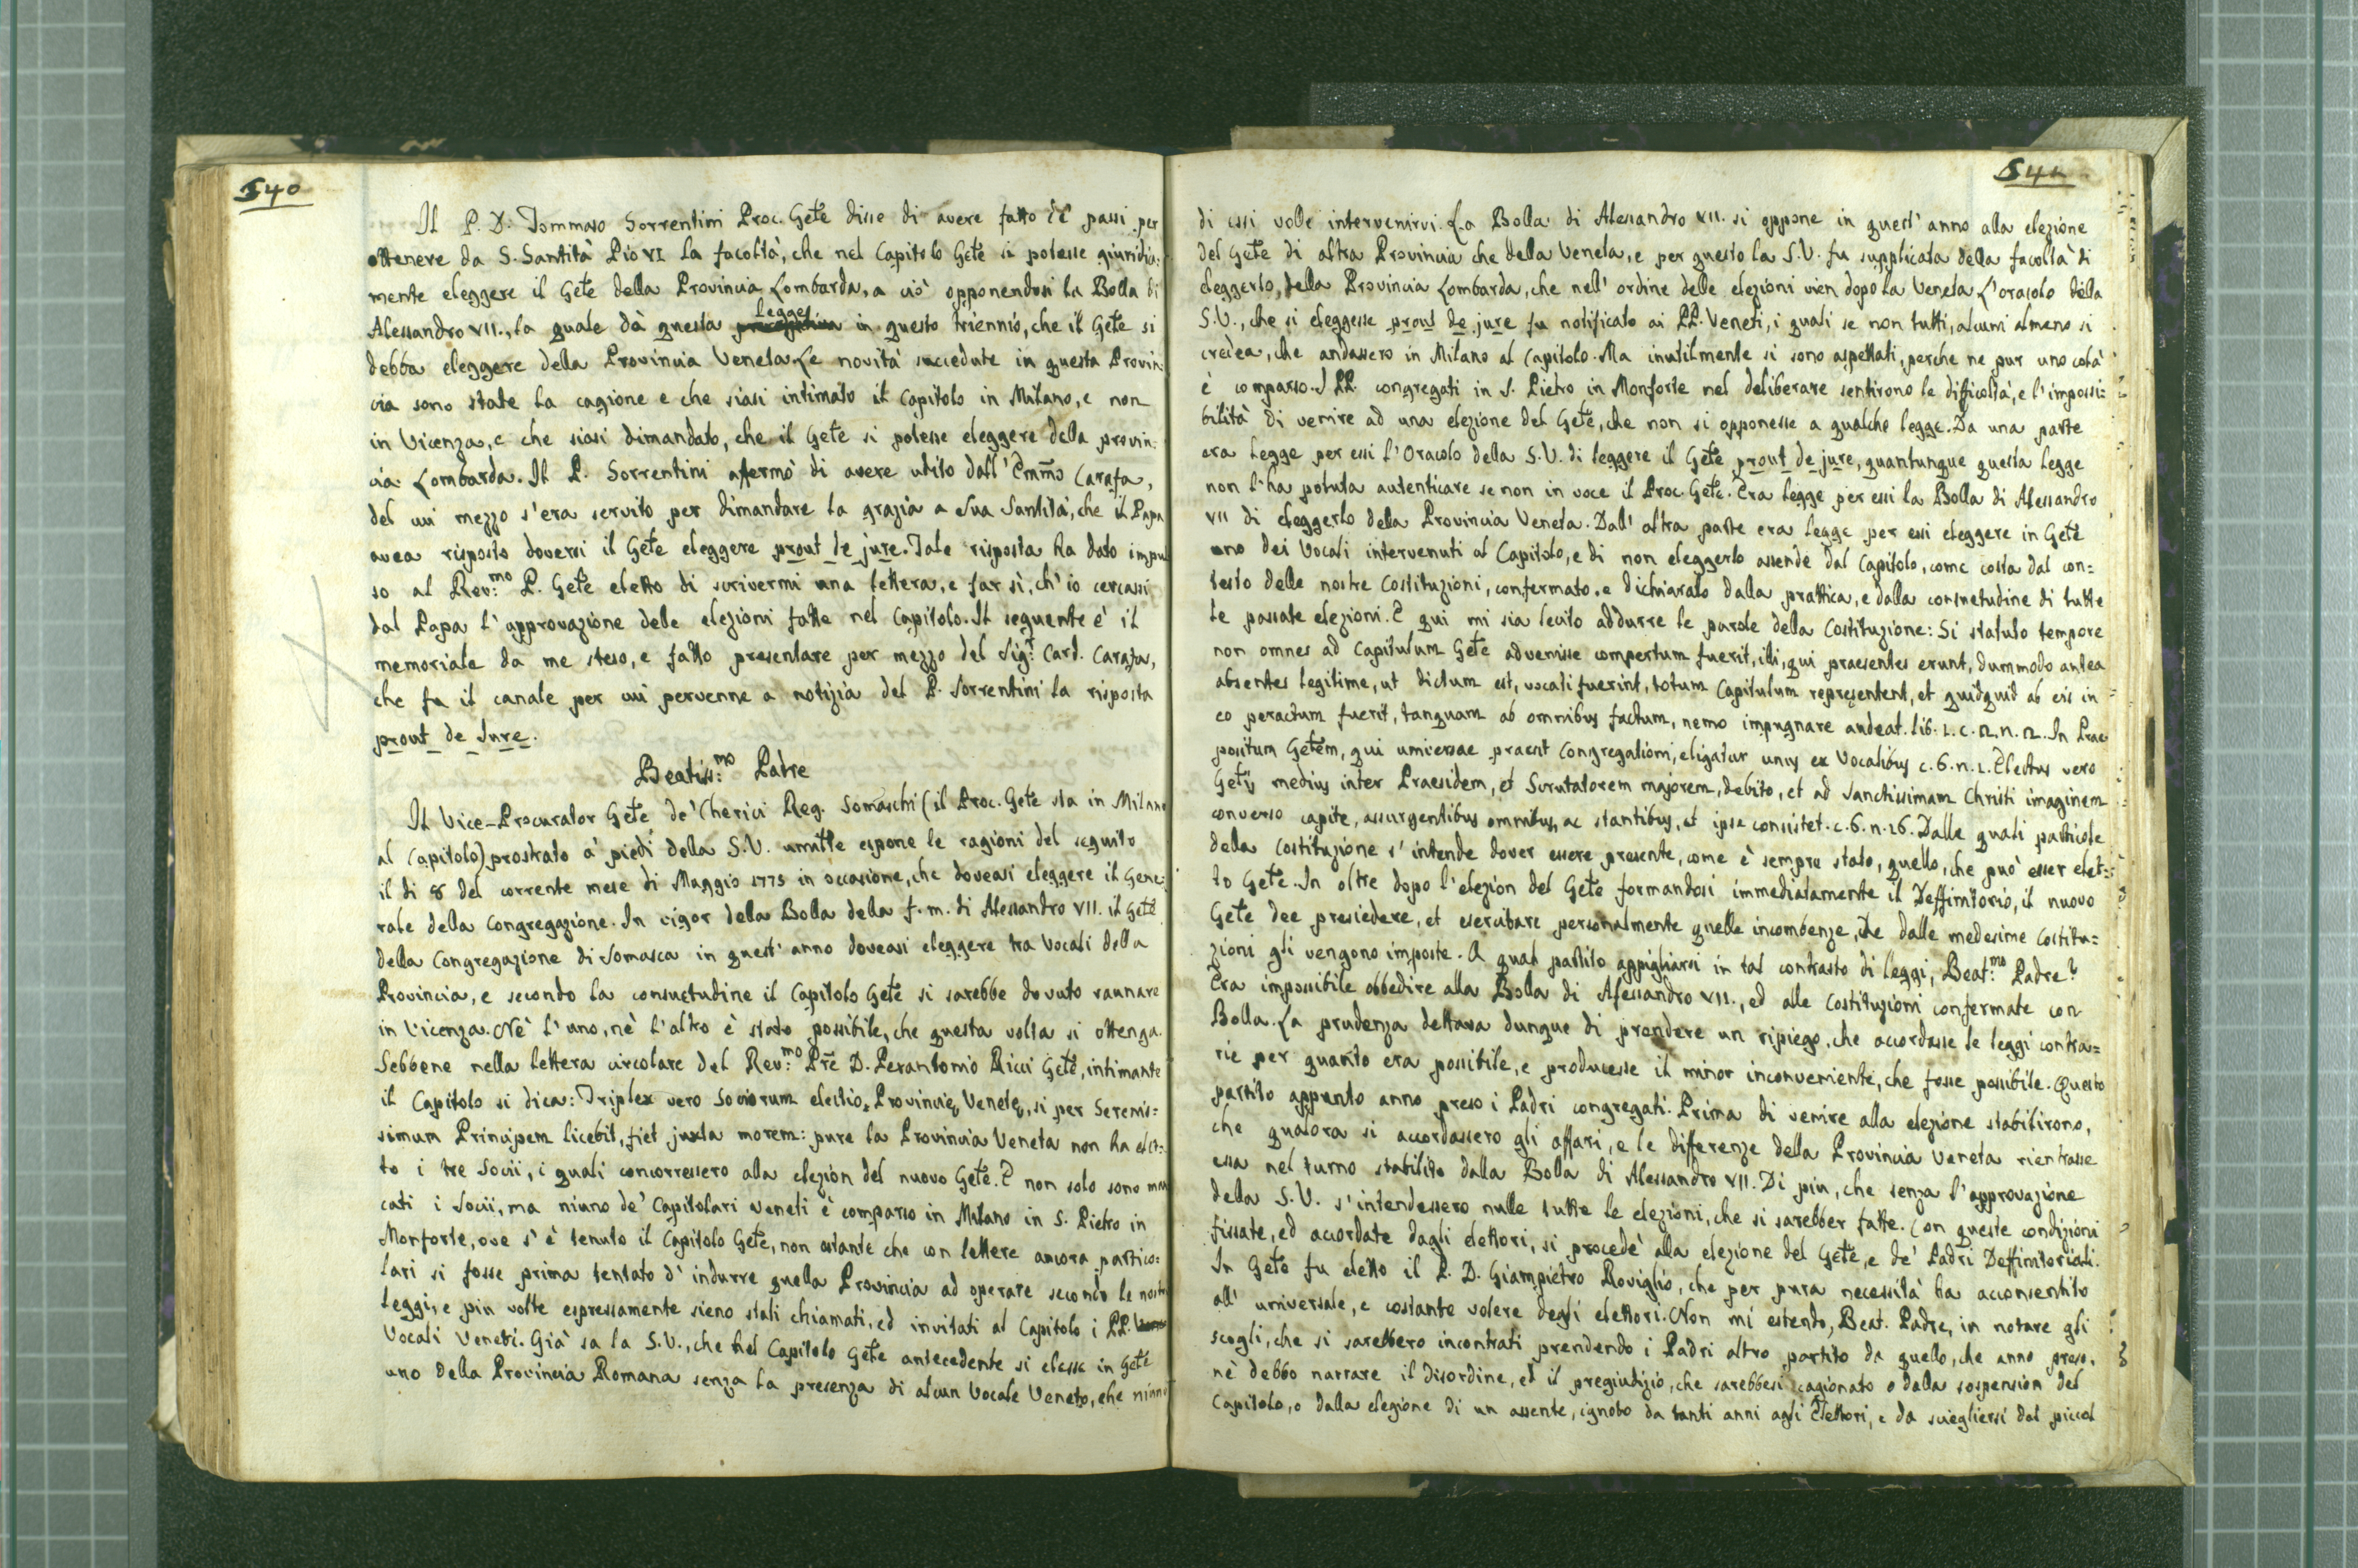 540
Il P. D. Tommaso Sorrentini Proc. Gete disse di avere fatto de' passi per
ottenere da S. Santità Pio VI la facoltà, che nel Capitolo Gete si potesse giuridica:
mente eleggere il Gete della Provincia Lombarda, a ciò opponendosi la Bolla di
legge
Alessandro VII., la quale dà questa in questo triennio, che il Gete si
debba eleggere della Provincia Veneta. Le novità succedute in questa Provin:
cia sono state la cagione e che siasi intimato il Capitolo in Milano, e non
in Vicenza, e che siasi dimandato, che il Gete si potesse eleggere della provin:
cia Lombarda. Il P. Sorrentini affermò di avere udito dall' Emmo Carafa,
del cui mezzo s'era servito per dimandare la grazia a Sua Santità, che il Papa
avea risposto doversi il Gete eleggere prout de jure. Tale risposta ha dato impul
so al Rev:mo P. Gete eletto di scrivermi una lettera, e far sì, ch'io cercassi
dal Papa l'approvazione delle elezioni fatte nel Capitolo. Il seguente è il
memoriale da me steso, e fatto presentare per mezzo del Sig:r Card. Carafa,
che fu il canale per cui pervenne a notizia del P. Sorrentini la risposta
prout de Jure.
Beatiss:mo Padre
Il Vice-Procurator Gete de' Cherici Reg. Somaschi (il Proc. Gete sta in Milano
al Capitolo) prostrato a' piedi della S.V. umilte espone le ragioni del seguito
il di 8 del corrente mese di Maggio 1775 in occasione, che doveasi eleggere il Gene:
rale della Congregazione. In vigor della Bolla della f. m. di Alessandro VII. il Gete
della Congregazione di Somasca in quest' anno doveasi eleggere tra Vocali della
Provincia, e secondo la consuetudine il Capitolo Gete si sarebbe dovuto raunare
in Vicenza. Nè l'uno, nè l'altro è stato possibile, che questa volta si ottenga.
Sebbene nella lettera circolare del Rev:mo Pre D. Perantonio Ricci Gete, intimante
il Capitolo si dica: Triplex vero Sociorum electio Provinciæ Venetæ, si per Serenis:
simum Principem licebit, fiet juxta morem: pure la Provincia Veneta non ha elet:
to i tre Socii, i quali concorressero alla elezion del nuovo Gete. E non solo sono man
cati i Socii, ma niuno de' Capitolari Veneti è comparso in Milano in S. Pietro in
Monforte, ove s'è tenuto il Capitolo Gete, non ostante che con lettere ancora partico:
lari si fosse prima tentato d'indurre quella Provincia ad operare secondo le nostre
leggi, e piu volte espressamente sieno stati chiamati, ed invitati al Capitolo i PP.
Vocali Veneti. Già sa la S.V., che nel Capitolo Gete antecedente si elesse in Gete
uno della Provincia Romana senza la presenza di alcun Vocale Veneto, che niuno
541
di essi volle intervenirvi. La Bolla di Alessandro VII. si oppone in quest' anno alla elezione
del Gete di altra Provincia che della Veneta, e per questo la S.V. fu supplicata della facoltà di
eleggerlo, della Provincia Lombarda, che nell' ordine delle elezioni vien dopo la Veneta L'oracolo della
S.V., che si eleggesse prout de jure fu notificato ai PP. Veneti, i quali se non tutti, alcuni almeno si
credea, che andassero in Milano al Capitolo. Ma inutilmente si sono aspettati, perche ne pur uno colà
è comparso. I PP. congregati in S. Pietro in Monforte nel deliberare sentirono le difficoltà, e l'impossi:
bilità di venire ad una elezione del Gete, che non si opponesse a qualche legge. Da una parte
era legge per essi l'Oracolo della S.V. di leggere il Gete prout de jure, quantunque questa legge
non l'ha potuta autenticare se non in voce il Proc. Gete. Era legge per essi la Bolla di Alessandro
VII di eleggerlo della Provincia Veneta. Dall' altra parte era legge per essi eleggere in Gete
uno dei Vocali intervenuti al Capitolo, e di non eleggerlo assende dal Capitolo, come costa dal con=
testo delle nostre Costituzioni, confermato, e dichiarato dalla prattica, e dalla consuetudine di tutte
le passate elezioni. E qui mi sia lecito addurre le parole della Costituzione: Si statuto tempore
non omnes ad Capitulum Gete advenisse compertum fuerit, illi, qui praesentes erunt, dummodo antea
absentes legitime, ut dictum est, vocati fuerint, totum Capitulum repręsentent, et quidquid ab eis in
eo peractum fuerit, tanquam ab omnibus factum, nemo impugnare audeat. lib. 1. c. 2. n. 2. In Prae
positum Getem, qui universae praeest Congregationi, eligatur unus ex Vocalibus c. 6. n. 1. Electus vero
Getis medius inter Praesidem, et Scrutatorem majorem, debito, et ad Sanctissimam Christi imaginem
converso capite, assurgentibus omnibus, ac stantibus, et ipse consistet. c. 6. n. 16. Dalle quali particole
della Costituzione s'intende dover essere presente, come è sempre stato, quello, che può esser elet=
to Gete. In oltre dopo l'elezion del Gete formandosi immediatamente il Deffinitorio, il nuovo
Gete dee presiedere, et esercitare personalmente quelle incombenze, che dalle medesime Costitu=
zioni gli vengono imposte. A qual partito appigliarsi in tal contrasto di leggi, Beat:mo Padre?
Era impossibile obbedire alla Bolla di Alessandro VII., ed alle Costituzioni confermate con
Bolla. La prudenza dettava dunque di prendere un ripiego, che accordasse le leggi contra=
rie per quanto era possibile, e producesse il minor inconveniente, che fosse possibile. Questo
partito appunto anno preso i Padri congregati. Prima di venire alla elezione stabilirono,
che qualora si accordassero gli affari, e le differenze della Provincia Veneta rientrasse
essa nel turno stabilito dalla Bolla di Alessandro VII. Di piu, che senza l'approvazione
della S.V. s'intendessero nulle tutte le elezioni, che si sarebber fatte. Con queste condizioni
fissate, ed accordate dagli elettori, si procedè alla elezione del Gete, e de' Padri Deffinitoriali.
In Gete fu eletto il P. D. Giampietro Roviglio, che per pura necessità ha acconsentito
all' universale, e costante volere degli elettori. Non mi estendo, Beat. Padre, in notare gli
scogli, che si sarebbero incontrati prendendo i Padri altro partito da quello, che anno preso,
nè debbo narrare il disordine, ed il pregiudizio, che sarebbesi cagionato o dalla sospension del
Capitolo, o dalla elezione di un assente, ignoto da tanti anni agli Elettori, e da sciegliersi dal piccol